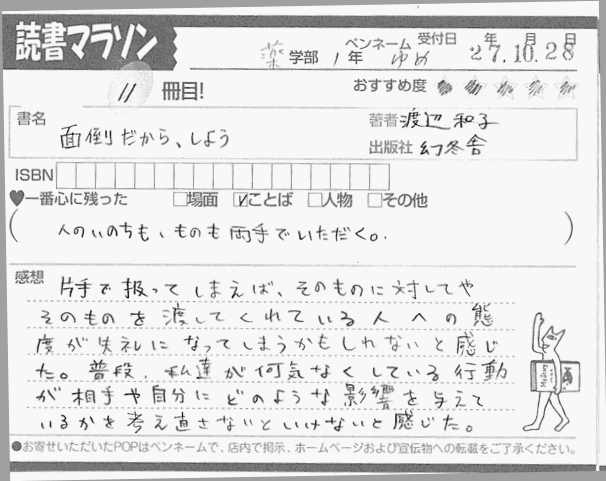 読書マラソン
薬学部 1年 ペンネーム ゆめ 受付日 27年10月28日
11冊目!
おすすめ度
書名 面倒だから、しよう
著者 渡辺和子
出版社 幻冬舎
ISBN
♥一番心に残った □場面 ☑ことば □人物 □その他
(人のいのちも、ものも両手でいただく。)
感想 片手で扱ってしまえば、そのものに対してや
そのものを渡してくれている人への態
度が失礼になってしまうかもしれないと感じ
た。普段、私達が何気なくしている行動
が相手や自分にどのような影響を与えて
いるかを考え直さないといけないと感じた。
●お寄せいただいたPOPはペンネームで、店内で掲示、ホームページおよび宣伝物への転載をご了承ください。